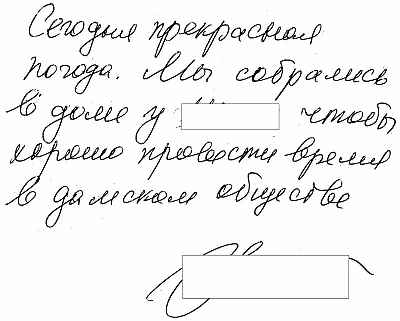 Сегодня прекрасная
погода. Мы собрались
в доме у чтобы
хорошо провести время
в дамском обществе